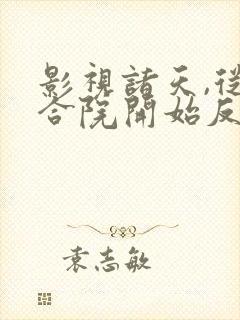 影視諸天,從
合院開始反
袁志敏